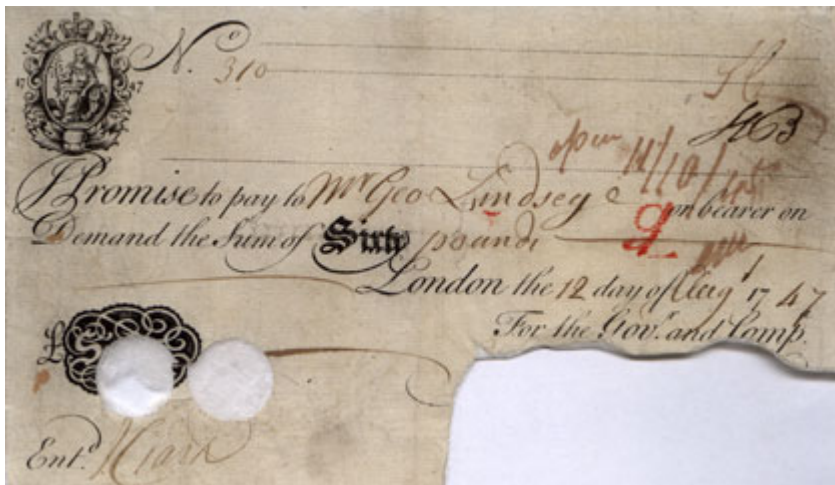 No. 310
17 47
I Promise to pay to Mr Geo Lindsey or bearer on
Demand the Sum of Sixty pounds
London the 12 day of Augt 1747
For the Govr. and Compa.
£ S
Entd.